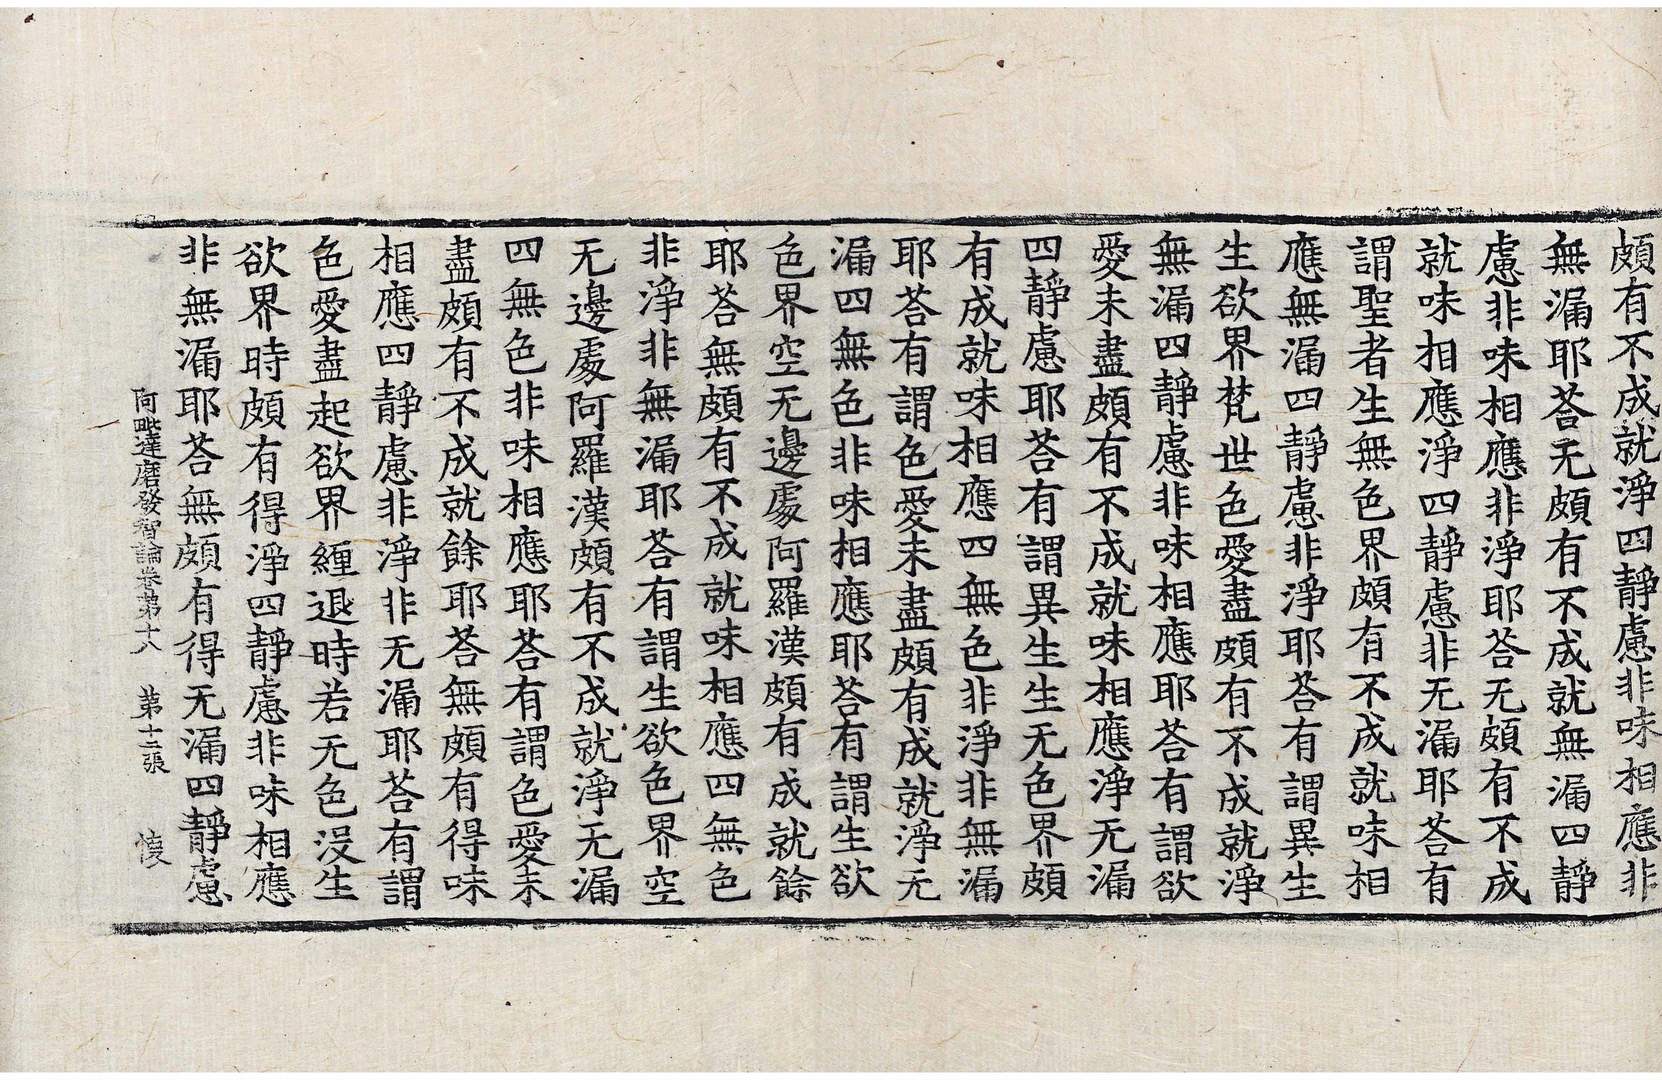 頗有不成就淨四靜慮非味相應非
無漏耶荅无頗有不成就無漏四靜
慮非味相應非淨耶荅无頗有不成
就味相應淨四靜慮非无漏耶荅有
謂聖者生無色界頗有不成就味相
應無漏四靜慮非淨耶荅有謂異生
生欲界梵世色愛盡頗有不成就淨
無漏四靜慮非味相應耶荅有謂欲
愛未盡頗有不成就味相應淨无漏
四靜慮耶荅有謂異生生无色界頗
有成就味相應四無色非淨非無漏
耶荅有謂色愛未盡頗有成就淨无
漏四無色非味相應耶荅有謂生欲
色界空无邊處阿羅漢頗有成就餘
耶荅無頗有不成就味相應四無色
非淨非無漏耶荅有謂生欲色界空
无邊處阿羅漢頗有不成就淨无漏
四無色非味相應耶荅有謂色愛未
盡頗有不成就餘耶荅無頗有得味
相應四靜慮非淨非无漏耶荅有謂
色愛盡起欲界纏退時若无色没生
欲界時頗有得淨四靜慮非味相應
非無漏耶荅無頗有得无漏四靜慮
阿毗達磨發智論卷第十八 第十二張